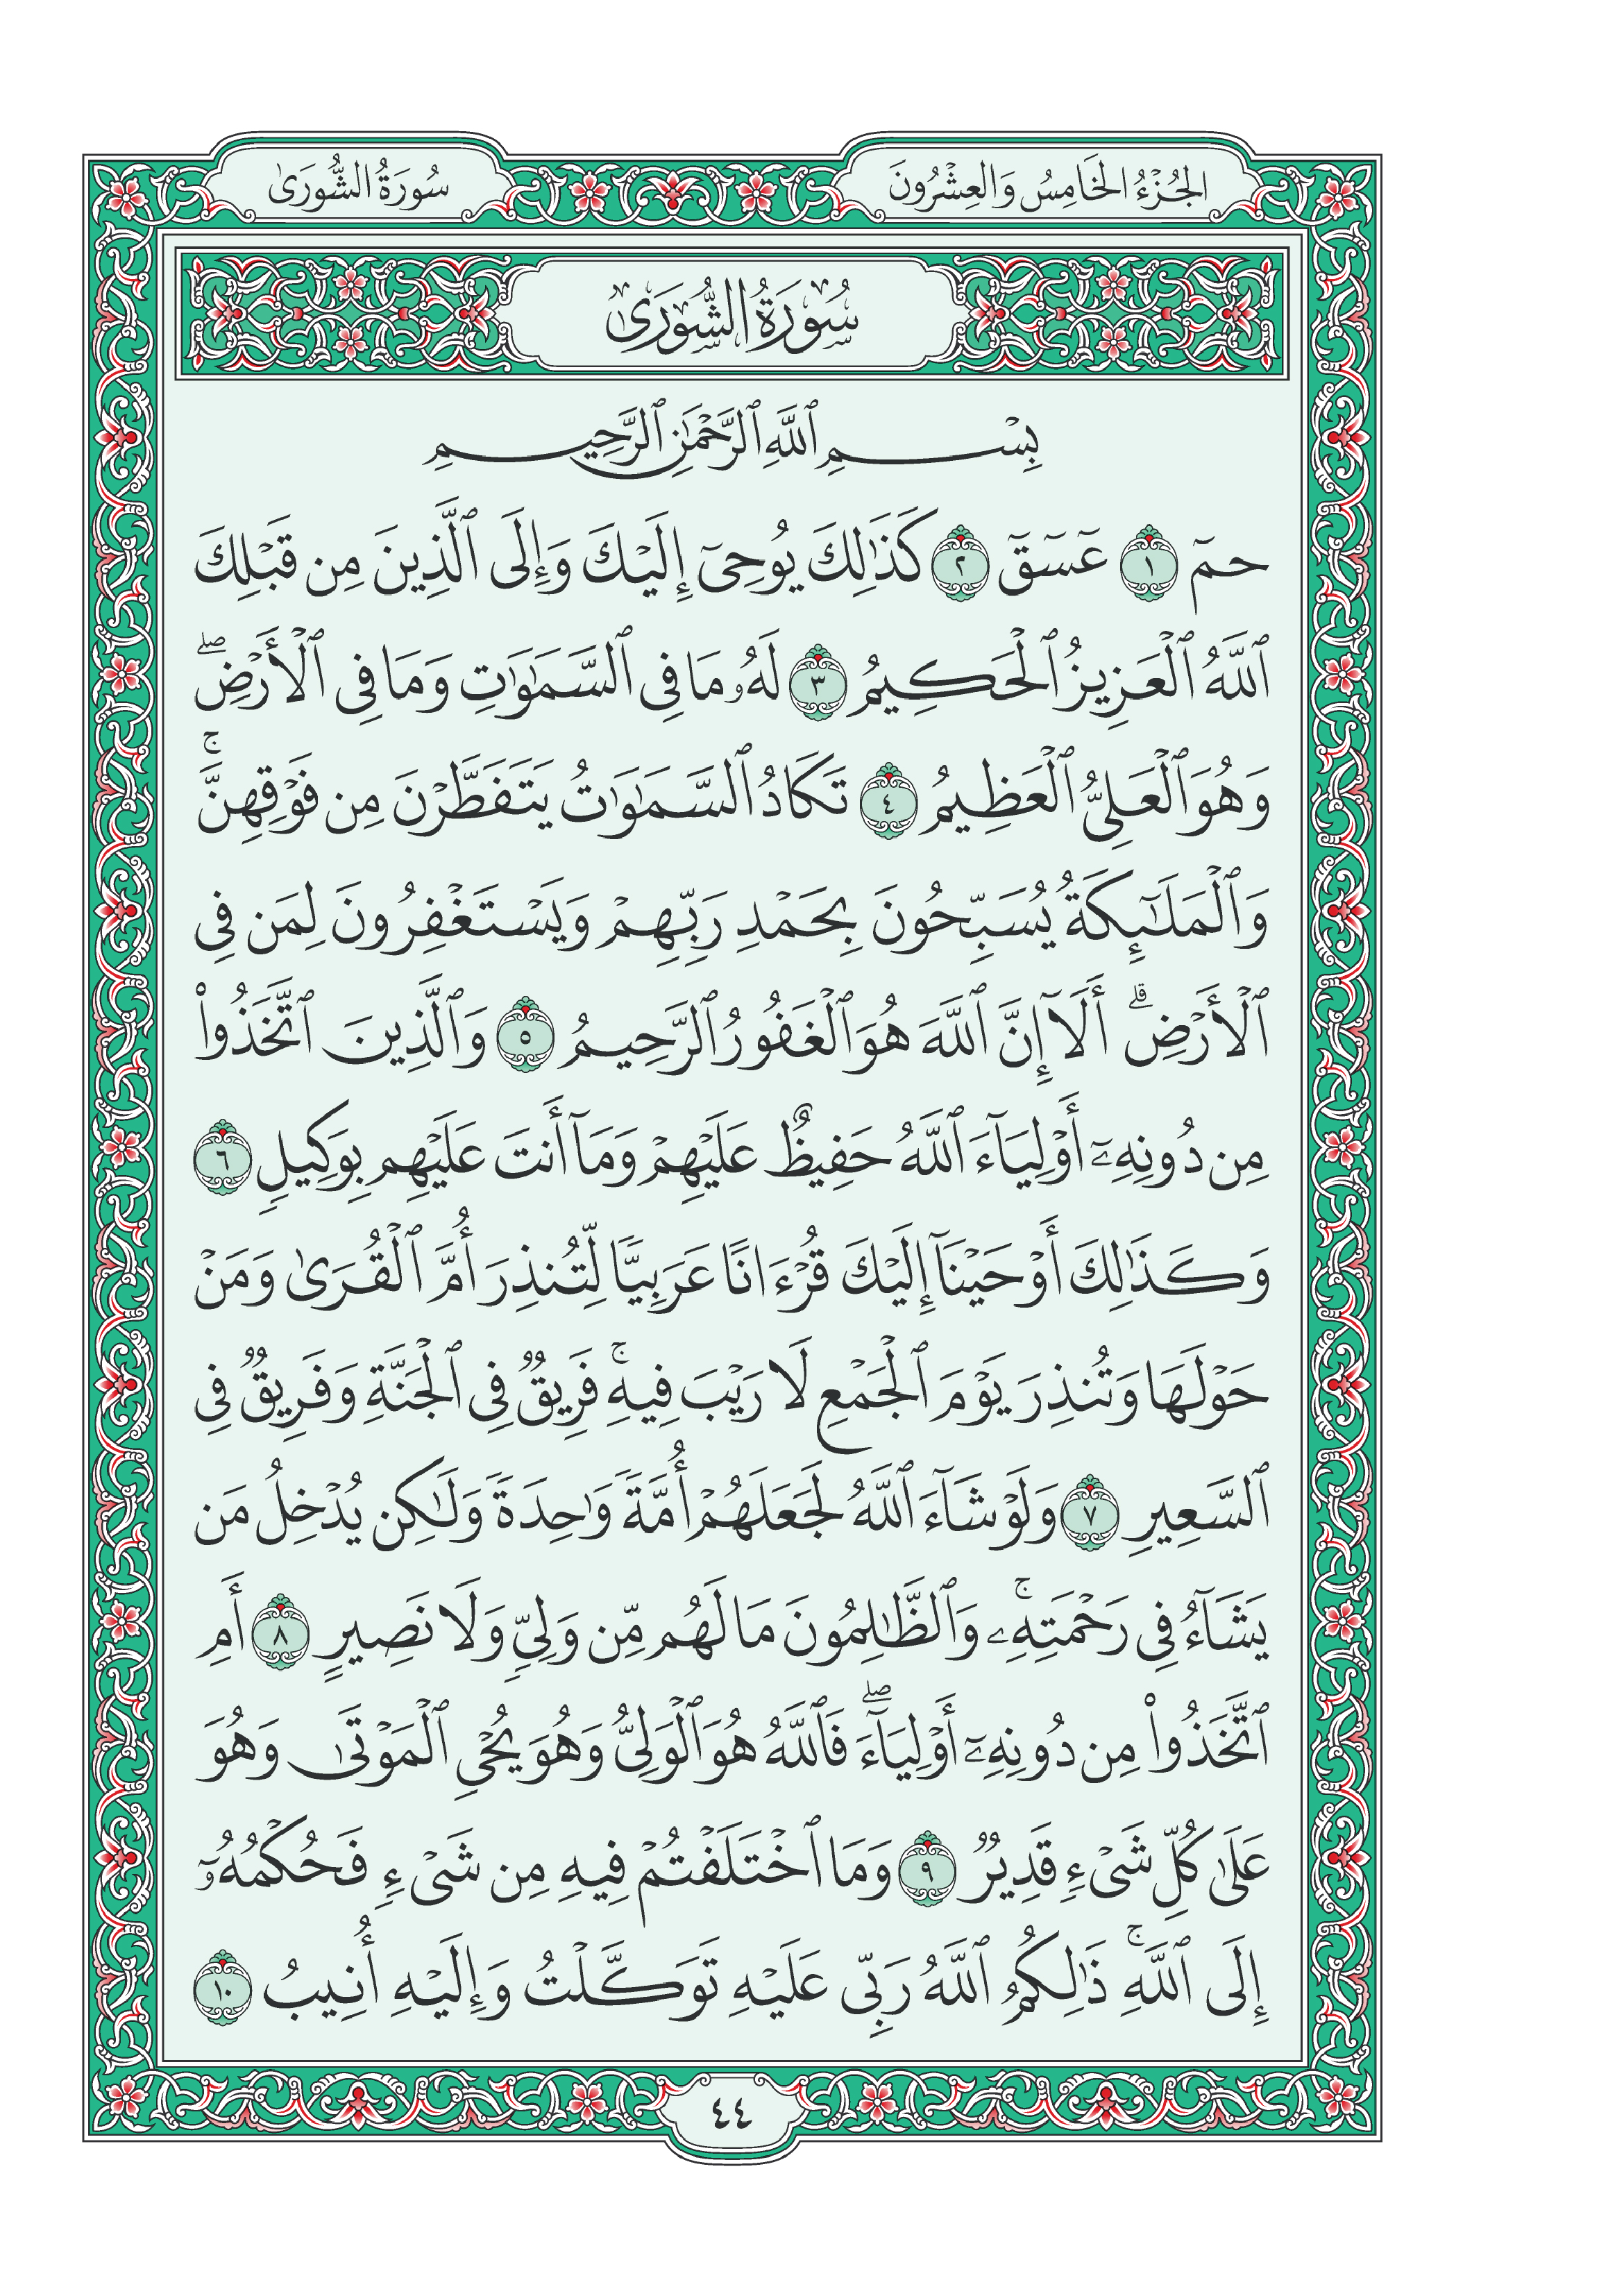 الجُزْءُ الخَامِسُ وَالعِشْرُونَ
سُورَةُ الشُّورَىٰ
سُورَةُ الشُّورَىٰ
بِسْمِ ٱللَّهِ ٱلرَّحْمَٰنِ ٱلرَّحِيمِ
حمٓ ١ عٓسٓقٓ ٢ كَذَٰلِكَ يُوحِىٓ إِلَيْكَ وَإِلَى ٱلَّذِينَ مِن قَبْلِكَ
ٱللَّهُ ٱلْعَزِيزُ ٱلْحَكِيمُ ٣ لَهُۥ مَا فِى ٱلسَّمَٰوَٰتِ وَمَا فِى ٱلْأَرْضِۖ
وَهُوَ ٱلْعَلِىُّ ٱلْعَظِيمُ ٤ تَكَادُ ٱلسَّمَٰوَٰتُ يَتَفَطَّرْنَ مِن فَوْقِهِنَّۚ
وَٱلْمَلَٰٓئِكَةُ يُسَبِّحُونَ بِحَمْدِ رَبِّهِمْ وَيَسْتَغْفِرُونَ لِمَن فِى
ٱلْأَرْضِۗ أَلَآ إِنَّ ٱللَّهَ هُوَ ٱلْغَفُورُ ٱلرَّحِيمُ ٥ وَٱلَّذِينَ ٱتَّخَذُوا۟
مِن دُونِهِۦٓ أَوْلِيَآءَ ٱللَّهُ حَفِيظٌ عَلَيْهِمْ وَمَآ أَنتَ عَلَيْهِم بِوَكِيلٍ ٦
وَكَذَٰلِكَ أَوْحَيْنَآ إِلَيْكَ قُرْءَانًا عَرَبِيًّا لِّتُنذِرَ أُمَّ ٱلْقُرَىٰ وَمَنْ
حَوْلَهَا وَتُنذِرَ يَوْمَ ٱلْجَمْعِ لَا رَيْبَ فِيهِۚ فَرِيقٌ فِى ٱلْجَنَّةِ وَفَرِيقٌ فِى
ٱلسَّعِيرِ ٧ وَلَوْ شَآءَ ٱللَّهُ لَجَعَلَهُمْ أُمَّةً وَٰحِدَةً وَلَٰكِن يُدْخِلُ مَن
يَشَآءُ فِى رَحْمَتِهِۦۚ وَٱلظَّٰلِمُونَ مَا لَهُم مِّن وَلِىٍّ وَلَا نَصِيرٍ ٨ أَمِ
ٱتَّخَذُوا۟ مِن دُونِهِۦٓ أَوْلِيَآءَۖ فَٱللَّهُ هُوَ ٱلْوَلِىُّ وَهُوَ يُحْىِ ٱلْمَوْتَىٰ وَهُوَ
عَلَىٰ كُلِّ شَىْءٍ قَدِيرٌ ٩ وَمَا ٱخْتَلَفْتُمْ فِيهِ مِن شَىْءٍ فَحُكْمُهُۥٓ
إِلَى ٱللَّهِۚ ذَٰلِكُمُ ٱللَّهُ رَبِّى عَلَيْهِ تَوَكَّلْتُ وَإِلَيْهِ أُنِيبُ ١٠
٤٤